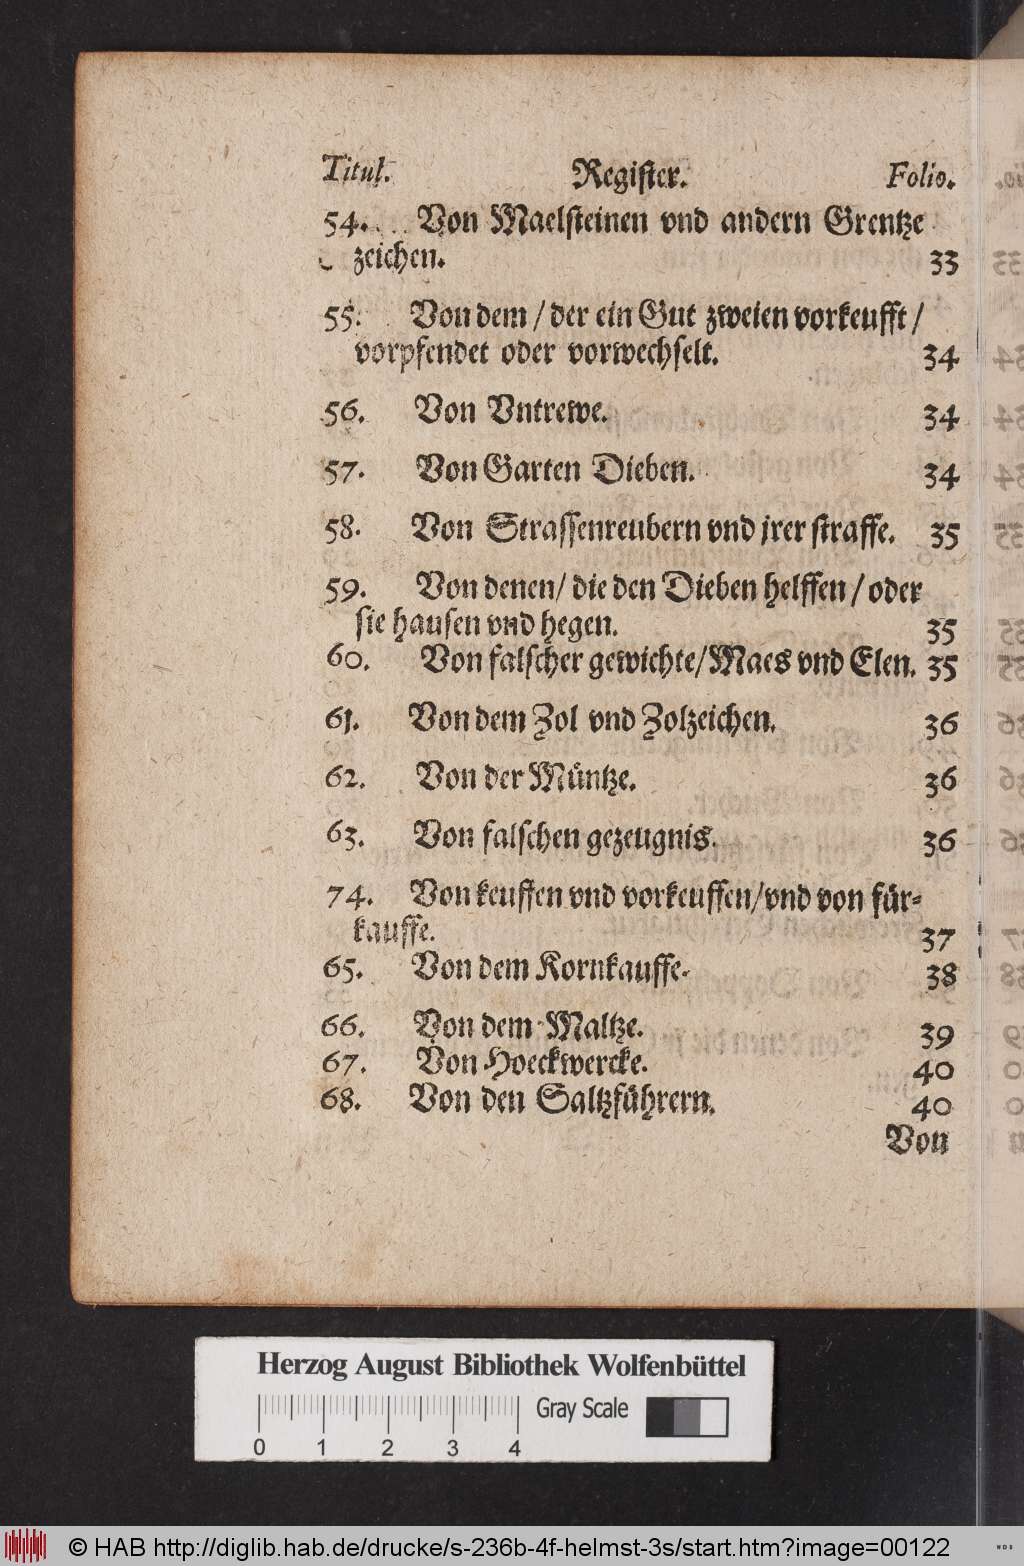 Titul. Register. Folio.
54. Von Maelsteinen vnd andern Grentze
zeichen. 33
55. Von dem / der ein Gut zweien vorkeufft /
vorpfendet oder vorwechselt. 34
56. Von Vntrewe. 34
57. Von Garten Dieben. 34
58. Von Strassenreubern vnd jrer straffe. 35
59. Von denen / die den Dieben helffen / oder
sie hausen vnd hegen. 35
60. Von falscher gewichte/Maes vnd Elen. 35
61. Von dem Zol vnd Zolzeichen. 36
62. Von der Müntze. 36
63. Von falschen gezeugnis. 36
74. Von keuffen vnd vorkeuffen/vnd von für-
kauffe. 37
65. Von dem Kornkauffe. 38
66. Von dem Maltze. 39
67. Von Hoeckwercke. 40
68. Von den Saltzführern. 40
Von
Herzog August Bibliothek Wolfenbüttel
Gray Scale
0 1 2 3 4
© HAB http://diglib.hab.de/drucke/s-236b-4f-helmst-3s/start.htm?image=00122